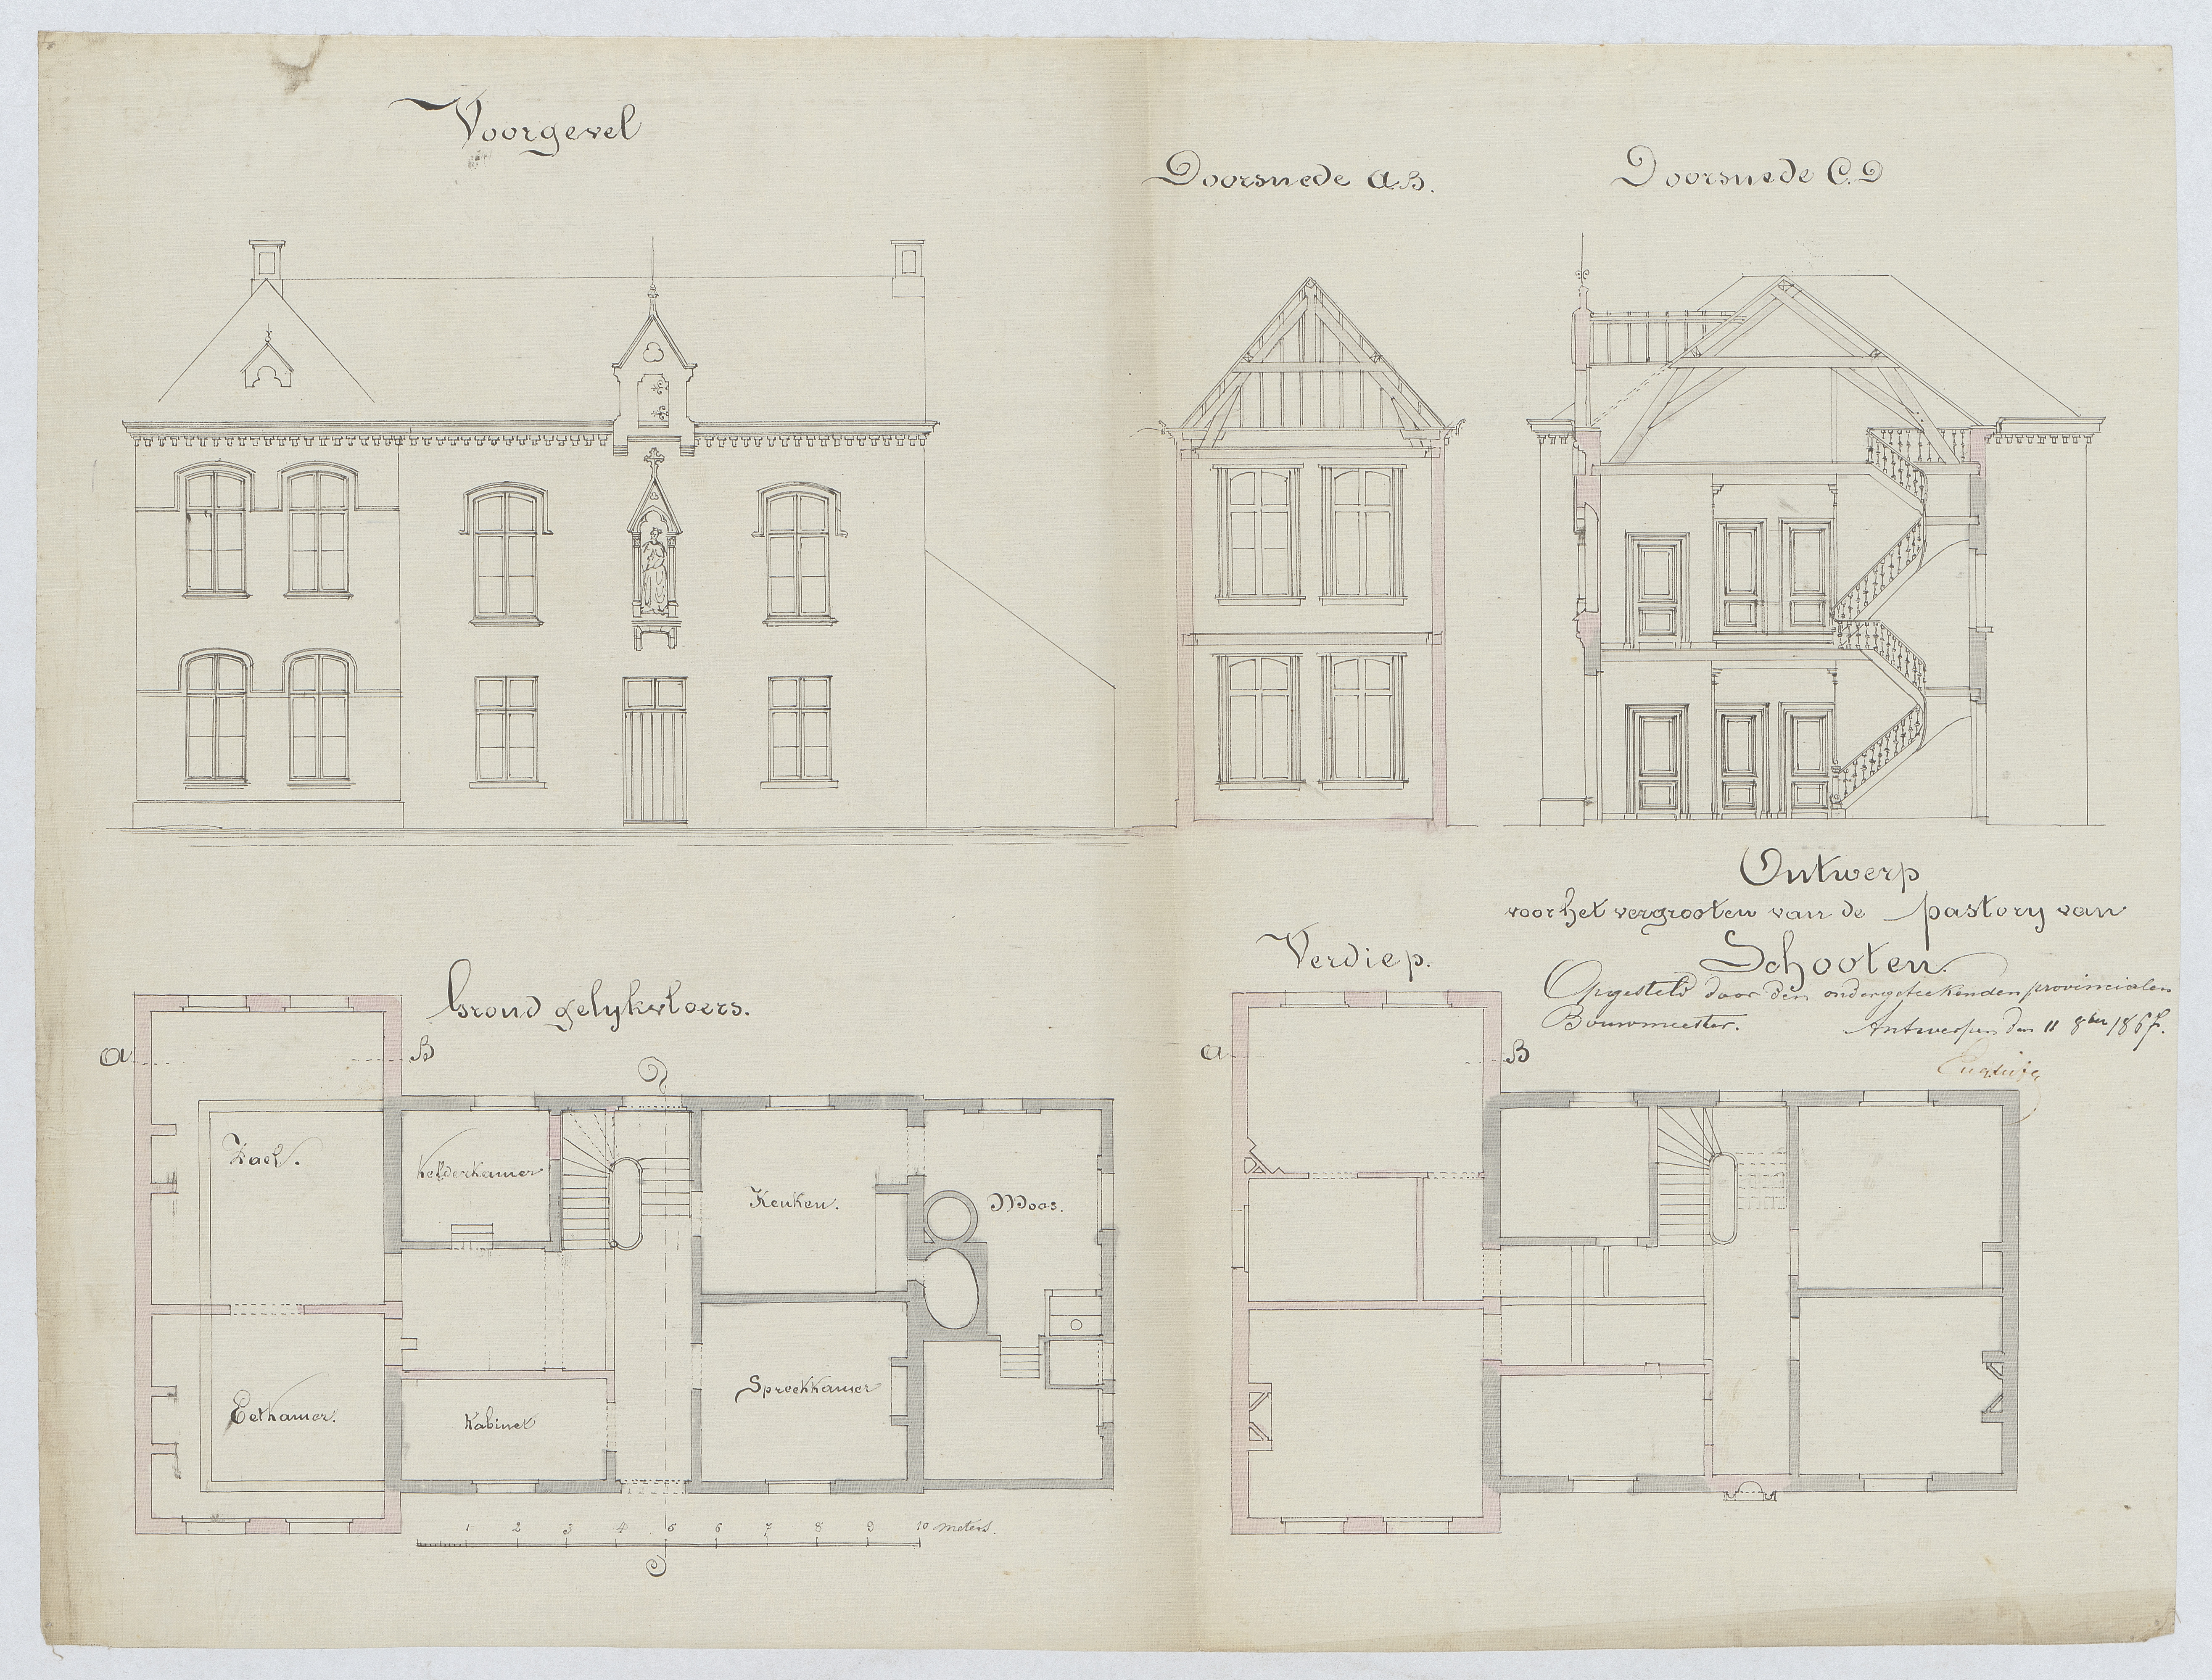 Voorgevel
Doorsnede A.B.
Doorsnede C.D
Ontwerp
voor het vergrooten van de pastory van
Schooten.
Opgesteld door den ondergeteekenden provincialen
Bouwmeester. Antwerpen den 11 8ber 186
Grond gelykvloers.
A B
D
Zael.
Kelderkamer
Keuken.
Moos.
Eetkamer.
Kabinet
Spreekkamer
1 2 3 4 5 6 7 8 9 10 meters.
C
Verdiep.
A B